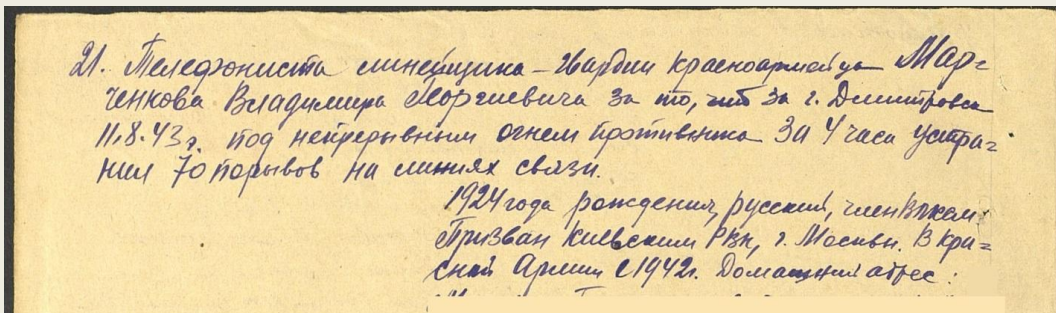 21. Телефониста линейщика – Гвардии красноармейца Мар=
ченкова Владимира Георгиевича за то, что за г. Дмитровск
11.8.43 г. под непрерывным огнем противника за 4 часа устра=
нил 70 порывов на линиях связи.
1924 года рождения, русский, член ВЛКСМ.
Призван Киевским РВК, г. Москвы. В Кра=
сной Армии с 1942 г. Домашний адрес: